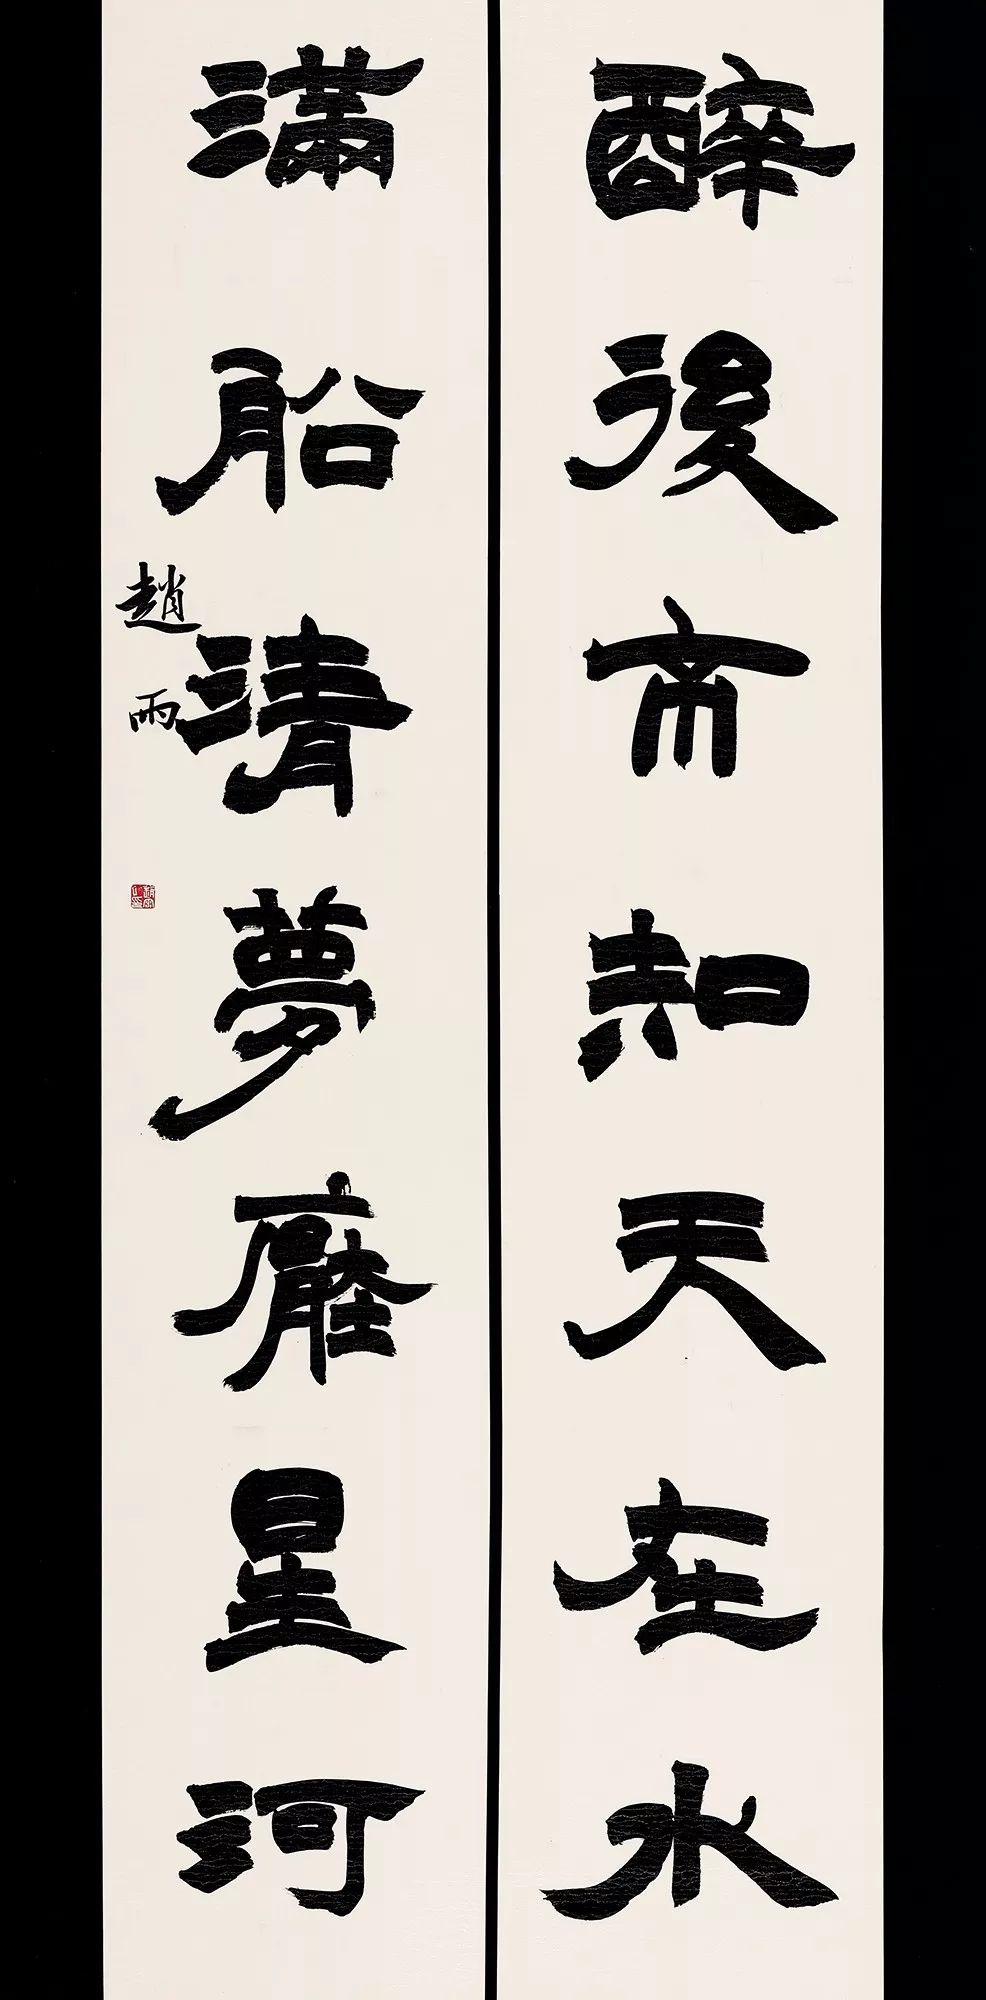 醉後不知天在水
滿船清夢壓星河
趙雨
趙雨之印